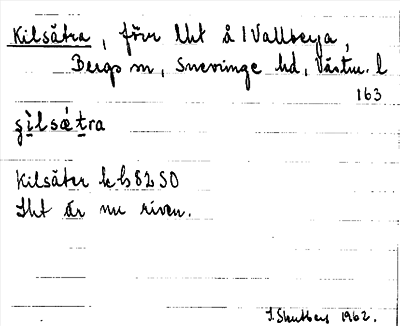 Kilsätra, förr lht å 1 Vallberga,
Bergs sn, Snevringe hd, Västm. l
163
ʂìlsæ̀tra
Kilsäter k b 82 SO
Lht är nu riven.
1962.